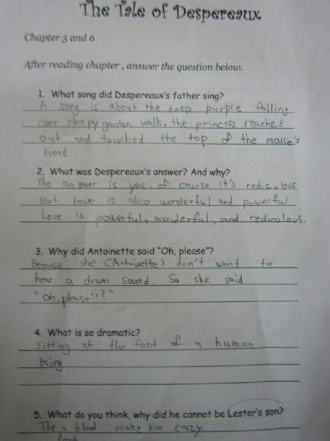 The Tale of Despereaux
Chapter 5 and 6
After reading chapter , answer the question below.
1. What song did Despereaux's father sing?
A song is about the deep purple falling
over sleepy garden walls, the princess reached
out and touched the top of the mouse's
head
2. What was Despereaux's answer? And why?
The answer is yes. of course it's rediculous.
But love is also wonderful and powerful
Love is powerful, wonderful, and rediculous.
3. Why did Antoinette said "Oh, please"?
Because she (Antoinette) don't want to
hear a drum sound. So she said
"Oh, please"?"
4. What is so dramatic?
Sitting at the foot of a human
king
5. What do you think, why did he cannot be Lester's son?
The blood make him crazy.